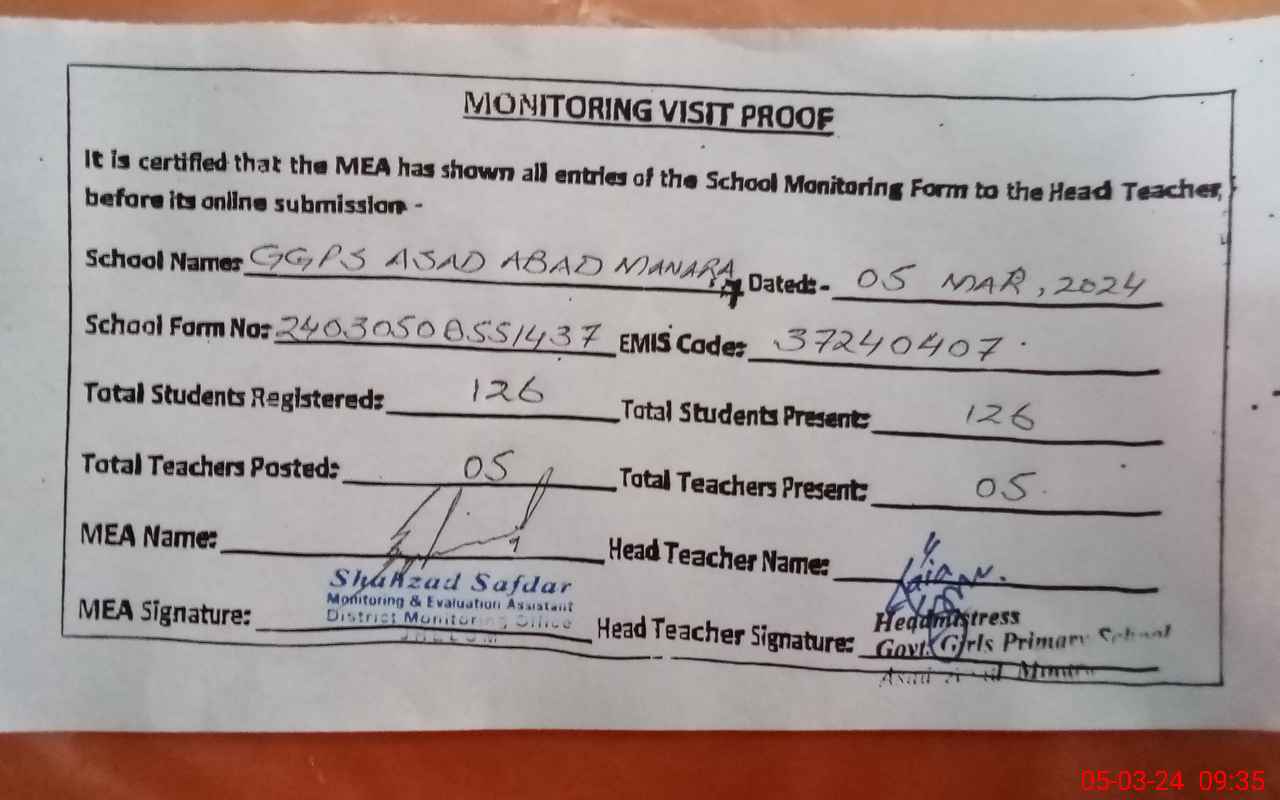 MONITORING VISIT PROOF
It is certified that the MEA has shown all entries of the School Monitoring Form to the Head Teacher,
before its online submission -
School Name: GGPS ASAD ABAD MANARA Dated:- 05 MAR, 2024
School Form No: 24030508551437 EMIS Code: 37240407
Total Students Registered: 126 Total Students Present: 126
Total Teachers Posted: 05 Total Teachers Present: 05
MEA Name: Head Teacher Name:
Shahzad Safdar
Monitoring & Evaluation Assistant
District Monitoring Office
JHELUM
MEA Signature: Head Teacher Signature:
Headmistress
Govt. Girls Primary School
05-03-24 09:35